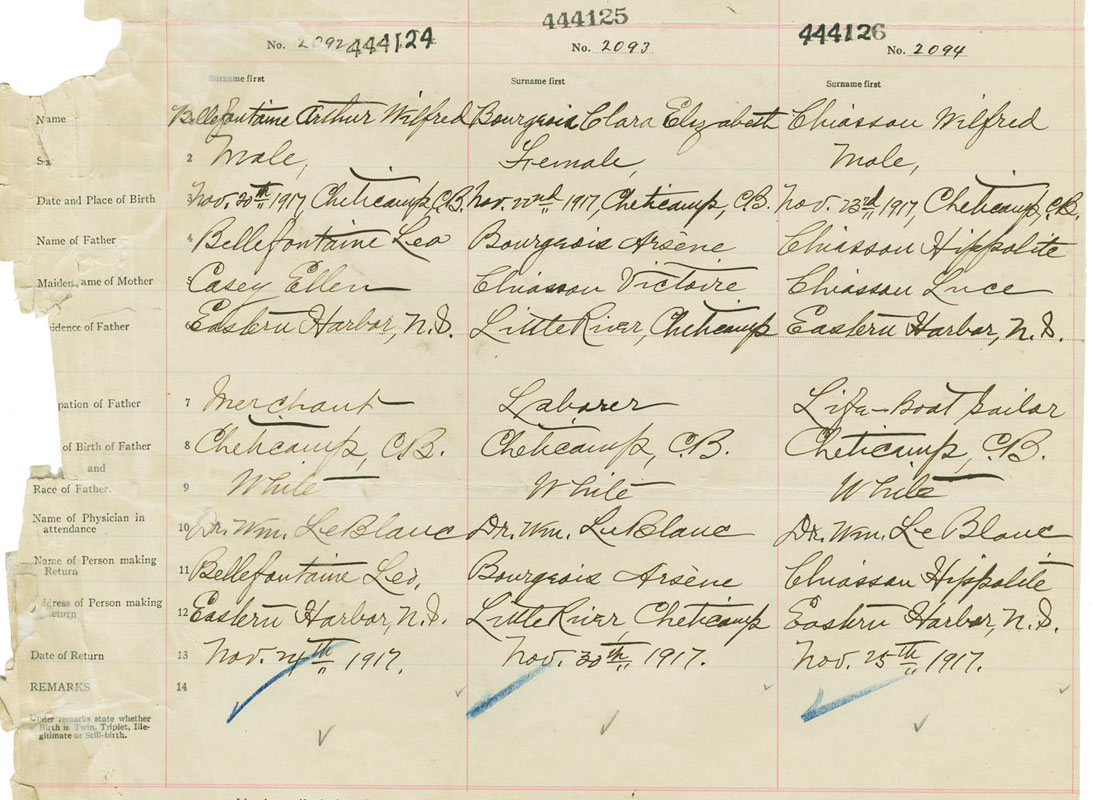 444124 444125 444126
No. 2092 No. 2093 No. 2094
Surname first Surname first Surname first
Name Bellefontaine Arthur Wilfred Bourgeois Clara Elizabeth Chiasson Wilfred
Sex 2 Male, Female, Male,
Date and Place of Birth 3 Nov. 20th 1917, Cheticamp, C.B. Nov. 22nd 1917, Cheticamp, C.B. Nov. 23rd 1917, Cheticamp, C.B.
Name of Father 4 Bellefontaine Leo Bourgeois Arsène Chiasson Hippolite
Maiden ame of Mother 5 Casey Ellen Chiasson Victoire Chiasson Luce
idence of Father Eastern Harbor, N.S. Little River, Cheticamp Eastern Harbor, N.S.
pation of Father 7 Merchant Laborer Life-Boat Sailor
of Birth of Father 8 Cheticamp, C.B. Cheticamp, C.B. Cheticamp, C.B.
and
Race of Father. 9 White White White
Name of Physician in attendance 10 Dr. Wm. LeBlanc Dr. Wm. LeBlanc Dr. Wm. Le Blanc
Name of Person making Return 11 Bellefontaine Leo, Bourgeois Arsène Chiasson Hippolite
ddress of Person making Return 12 Eastern Harbor, N.S. Little River, Cheticamp Eastern Harbor, N.S.
Date of Return 13 Nov. 24th 1917. Nov. 30th 1917. Nov. 25th 1917.
REMARKS 14
Under remarks state whether
Birth is Twin, Triplet, Ille-
gitimate or Still-birth.